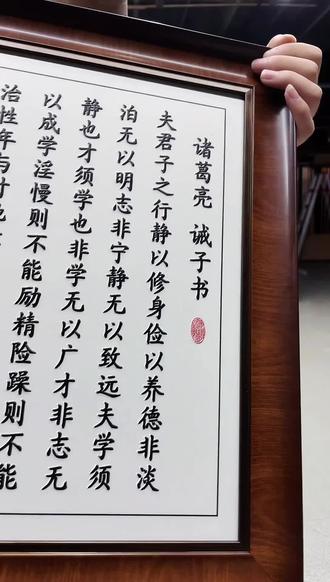 诸葛亮 诫子书
夫君子之行静以修身俭以养德非淡
泊无以明志非宁静无以致远夫学须
静也才须学也非学无以广才非志无
以成学淫慢则不能励精险躁则不能
治性年与时